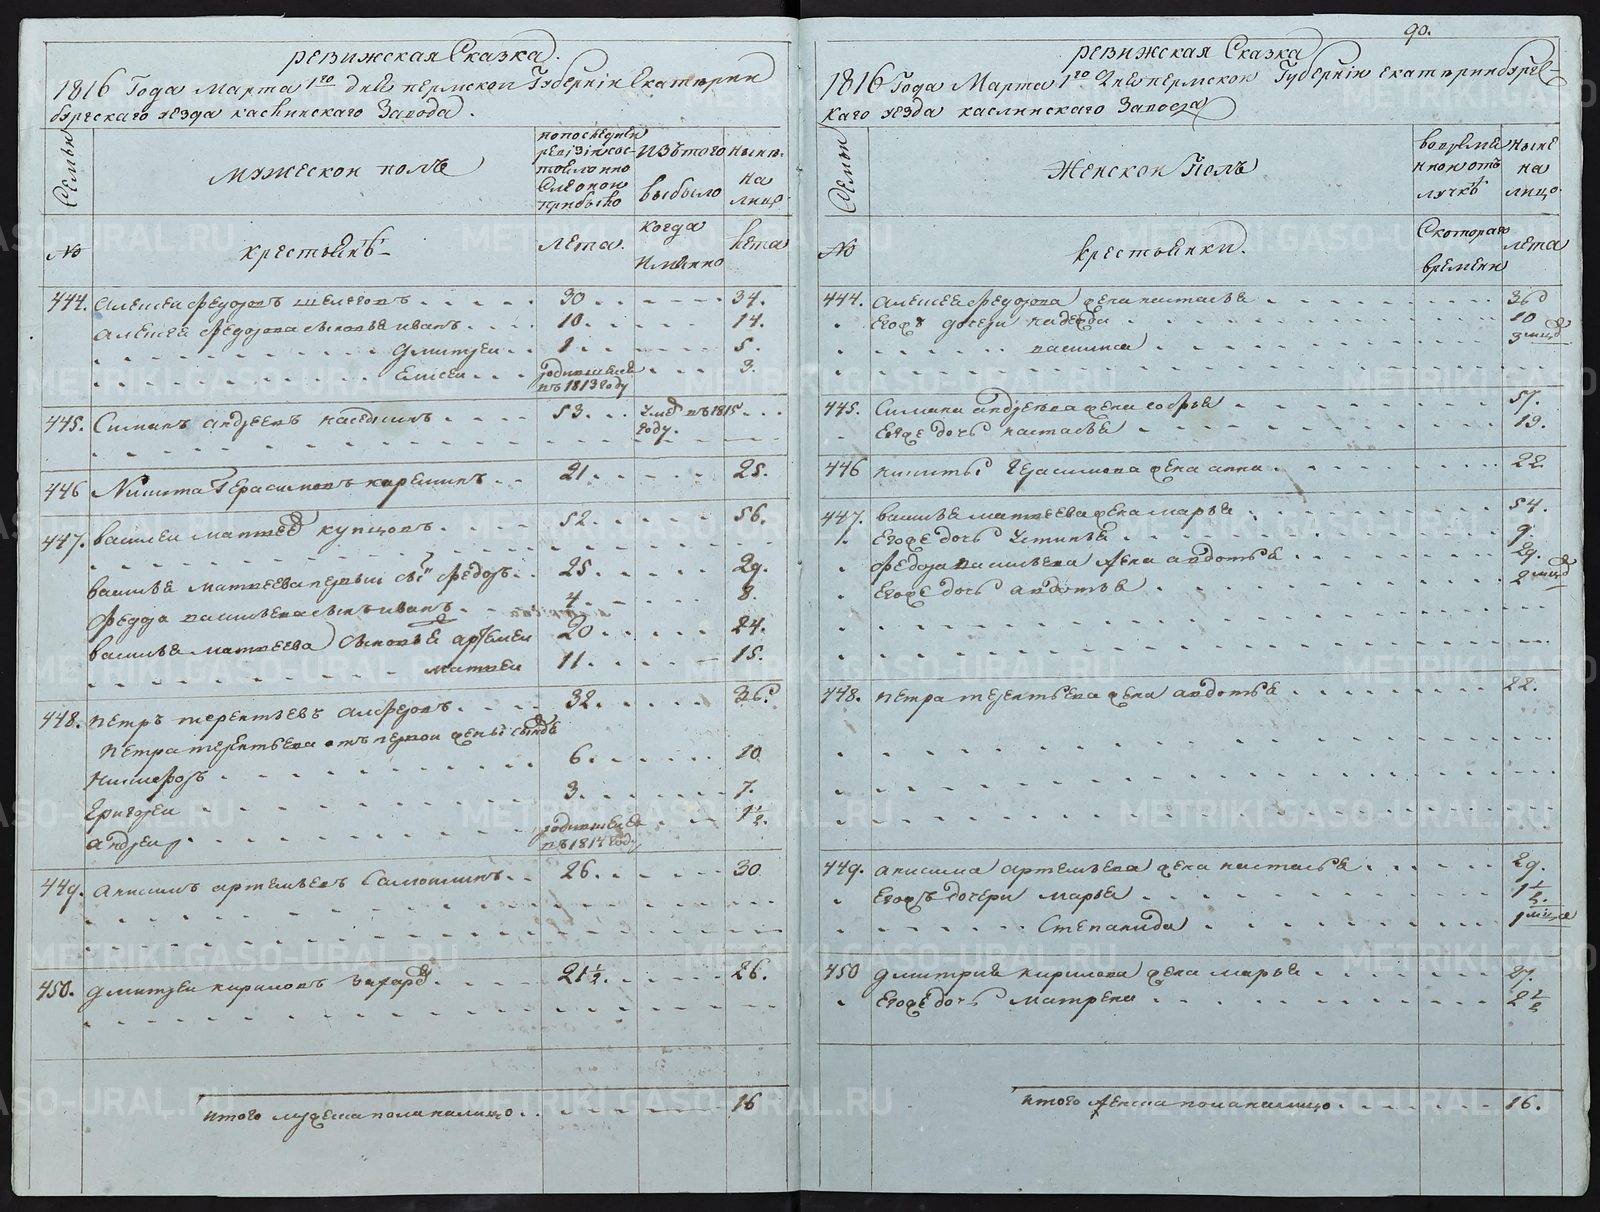 90.
ревижская Сказка.
1816 Года Марта 1го дне пермской Губернии Екатерин
бургскаго уезда каслинскаго Завода.
Семьи
мужескои полъ
попоследней
ревизии сос-
тояло ипо
Сле оной
прибыло
изътого
выбыло
ныне
на
лицо.
№
крестьянъ
лета.
когда
имянно
лета
444. алексеи федоровъ 30 34.
алексея федорова сыновья иванъ 10. 14.
дмитреи 1. 5.
Елисеи родившейся въ 1813 году 3.
445. андреевъ 53. умеръ въ 1815
году.
446 Никита Герасимовъ 21. 25.
447. василеи матвеевъ купцовъ. 52. 56.
василья матвеева первыи сынъ федоръ 25. 29.
федора васильева сынъ иванъ 4. 8.
василья матвеева сыновья артемеи 20 24.
матвеи 11. 15.
448. петръ терентьевъ алферовъ 32. 36.
петра терентьева отъ первой жены сыновья
никифоръ 6. 10
григореи 3. 7.
андреи родившейся въ 1814 году 1½.
449. анисимъ артемьевъ 26. 30
450. дмитреи кириловъ захаровъ 21½. 26.
итого мужеска пола налицо 16
ревижская Сказка
1816 Года Марта 1го дне пермской Губернии екатеринбургс-
каго уезда каслинскаго Завода
Семьи
Женскои Полъ
во време
нной отъ
лучке
ныне
на
лицо.
№
крестьянки.
Скотораго
времени
лета
444. алексея федорова жена настасья 36
Егожъ дочери надежда 10
василиса 3 месяцъ
445. андреева жена софья 57.
Егоже дочь настасья 19.
446 никиты герасимова жена анна 22
447. василья матвеева жена марья 54.
Егоже дочь устинья 9.
федора васильева жена авдотья 29.
Егоже дочь авдотья 2 месяцъ
448. петра терентьева жена авдотья 22.
449. анисима артемьева жена настасья 29.
Егожъ дочери марья 1½.
Степанида 1 месяца
450 дмитрия кирилова жена марья 27.
Егоже дочь матрена 2½
итого женска пола налицо 16.
METRIKI.GASO-URAL.RU